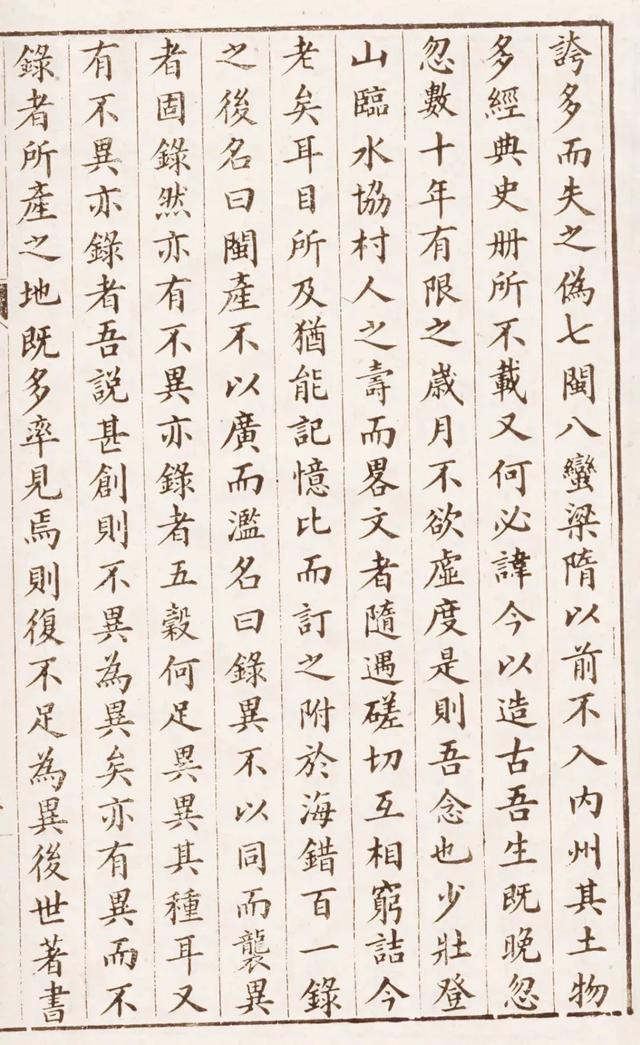 誇多而失之僞七閩八蠻梁隋以前不入内州其土物
多經典史册所不載又何必諱今以造古吾生既晚忽
忽數十年有限之歲月不欲虛度是則吾念也少壯登
山臨水協村人之壽而畧文者隨遇磋切互相窮詰今
老矣耳目所及猶能記憶比而訂之附於海錯百一錄
之後名曰閩產不以廣而濫名曰錄異不以同而襲異
者固錄然亦有不異亦錄者五穀何足異異其種耳又
有不異亦錄者吾説甚創則不異為異矣亦有異而不
錄者所產之地既多率見焉則復不足為異後世著書